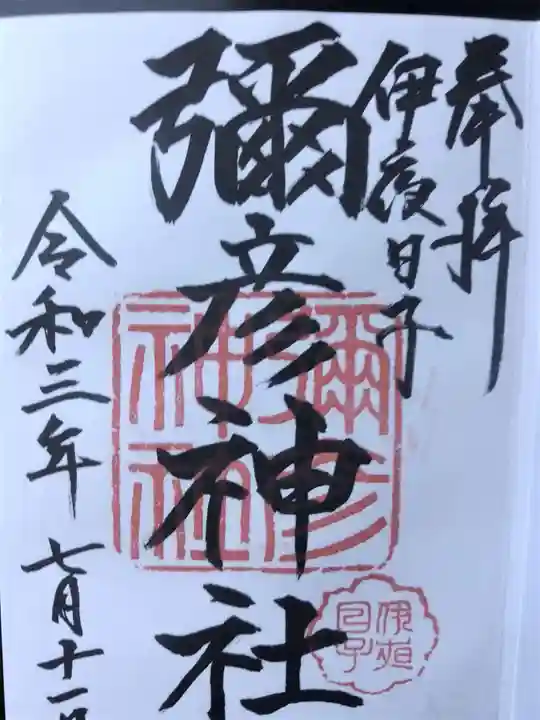 奉拝
伊夜日子
彌彦神社
令和三年七月十一日
彌彦
神社
伊夜
日子